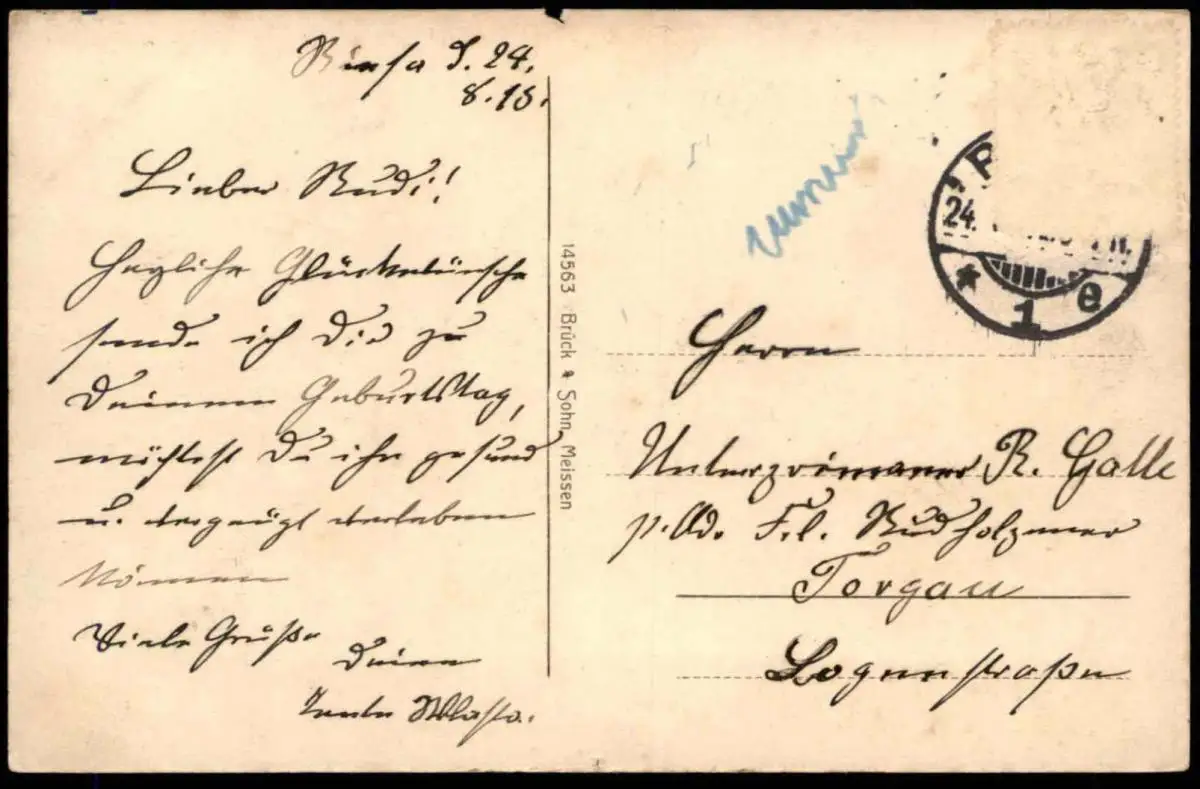 Riesa d. 24.
8. 15.
Lieber Rudi!
Herzliche Glückwünsche
sende ich Dir zu
Deinem Geburtstag,
möchtest Du ihn gesund
u. vergnügt verleben
können
Viele Grüße
Deine
Tante
14563 Brück & Sohn, Meissen
24.
* 1 e
Herrn
Unterprimaner R. Galle
p. Ad. Frl.
Torgau
Logenstraße